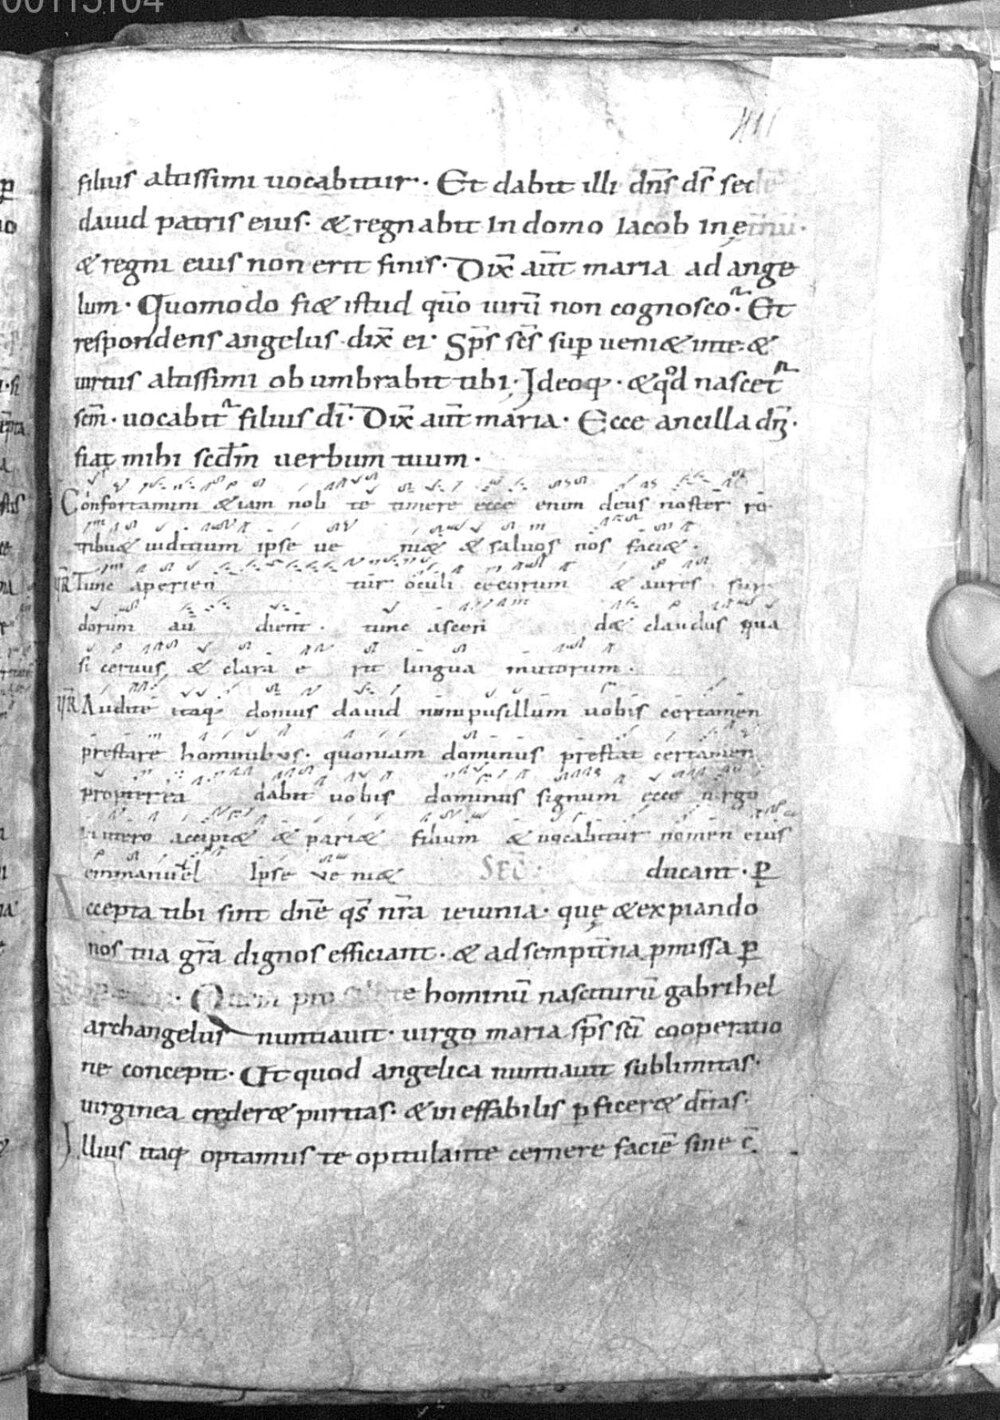 00113104
filius altissimi uocabitur. Et dabit illi dn̄s ds̄ sede
dauid patris eius. & regnabit In domo Iacob In ę
& regni eius non erit finis. Dix̄ aūt maria ad ange
lum. Quomodo fi& istud quō uirū non cognosco. Et
respondens angelus dix̄ ei. Sp̄s sc̄s sup ueni& inte. &
uirtus altissimi obumbrabit tibi. Ideoq. & qd nascet
scm̄. uocabit filius dī. Dix̄ aūt maria. Ecce ancilla dn̄i.
fiat mihi scdm̄ uerbum tuum.
Confortamini & iam noli te timere ecce enim deus noster r&
tibu& iuditium ipse ue ni& & saluos nos faci&.
℣ Tunc aperien tur oculi cecorum & aures sur
dorum au dient. tunc ascen d& claudus qua
si ceruus, & clara e rit lingua mutorum.
℣ Audite itaq domus dauid non pusillum uobis certamen
prestare hominibus. quoniam dominus prestat certamen
propterea dabit uobis dominus signum ecce uirgo
in utero accipi& & pari& filium & uocabitur nomen eius
emmanuel Ipse ue ni& SEC. ducant. p
Accepta tibi sint dn̄e qs̄ nr̄a ieiunia. quę & expiando
nos tua gr̄a dignos efficiant. & ad sempit̄na pmissa p
Quem pro salute hominū nasciturū gabrihel
archangelus nuntiauit. uirgo maria sp̄s sc̄i cooperatio
ne concepit. Ut quod angelica nuntiauit sublimitas.
uirginea creder& puritas. & ineffabilis pficer& dītas.
Illius itaq optamus te opitulante cernere faciē sine c̄.